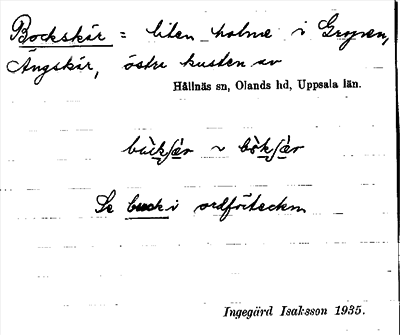 Bockskär = liten holme i Gryren,
Ängskär, östra kusten av
Hållnäs sn, Olands hd, Uppsala län.
bùckʃær ~ bòkʃær
Se bock i ordförteckn
Ingegärd Isaksson 1935.